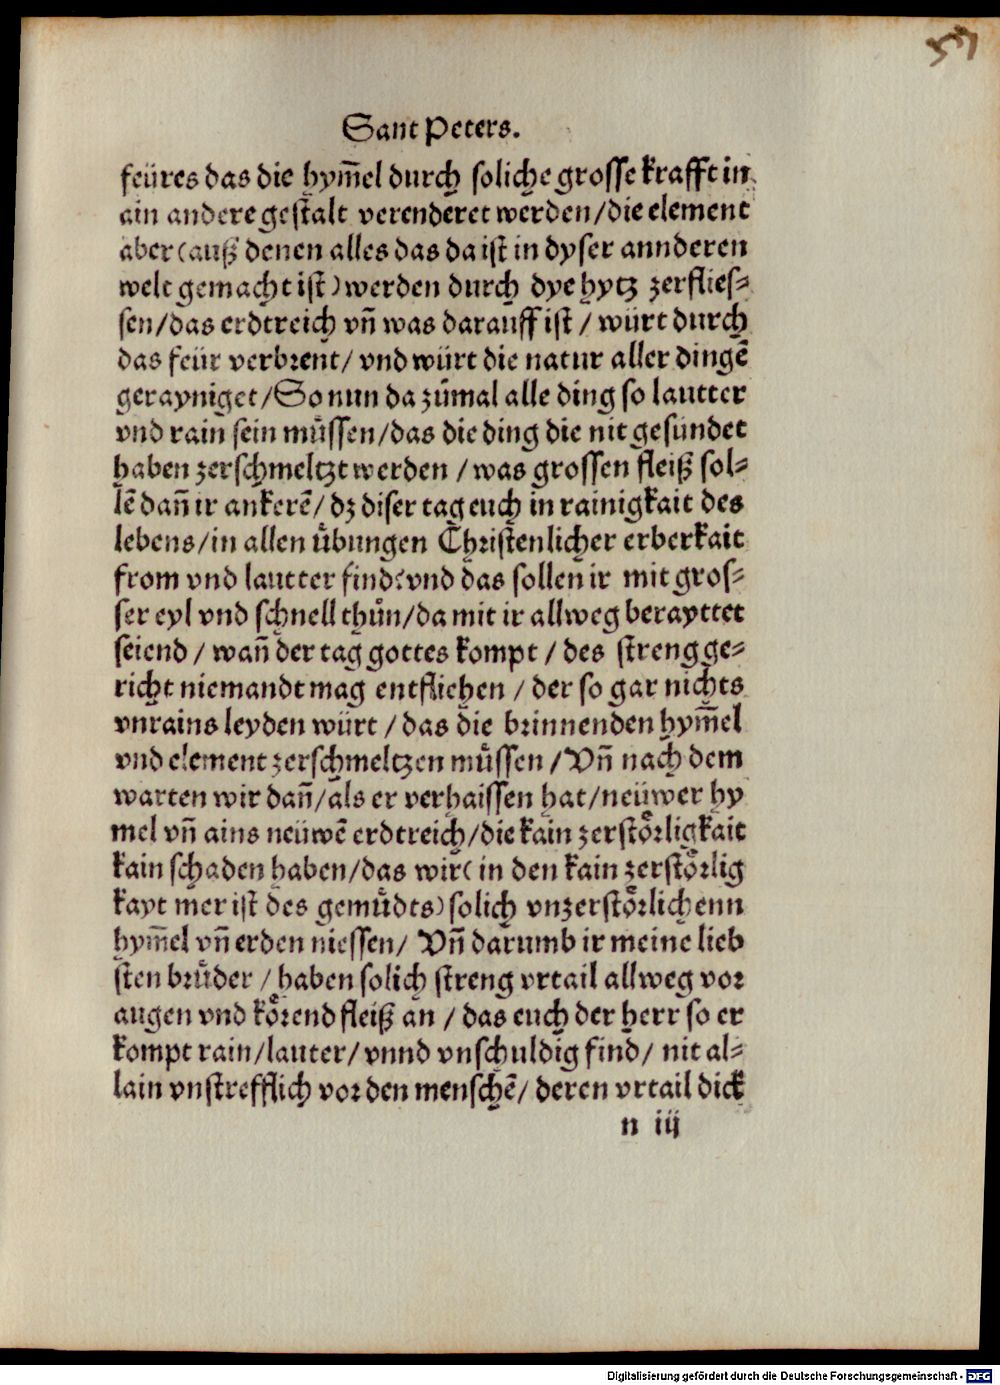 57
Sant Peters.
feüres das die hym̄el durch soliche grosse krafft in
ain andere gestalt verenderet werden/die element
aber(auß denen alles das da ist in dyser annderen
welt gemacht ist)werden durch dye hytz zerflies-
sen/das erdtreich vn̄ was darauff ist/würt durch
das feür verbrent/vnd würt die natur aller dingē
gerayniget/So nun da zůmal alle ding so lautter
vnd rain sein můssen/das die ding die nit gesündet
haben zerschmeltzt werden/was grossen fleiß sol-
lē dan̄ ir ankerē/dz diser tag euch in rainigkait des
lebens/in allen ůbungen Christenlicher erberkait
from vnd lautter find?vnd das sollen ir mit gros-
ser eyl vnd schnell thůn/da mit ir allweg berayttet
seiend/wan̄ der tag gottes kompt/des streng ge-
richt niemandt mag entfliehen/der so gar nichts
vnrains leyden würt/das die brinnenden hym̄el
vnd element zerschmeltzen můssen/Vn̄ nach dem
warten wir dan̄/als er verhaissen hat/neüwer hy
mel vn̄ ains neüwē erdtreich/die kain zerstoͤrligkait
kain schaden haben/das wir(in den kain zerstoͤrlig
kayt mer ist des gemůdts)solich vnzerstoͤrlichenn
hym̄el vn̄ erden niessen/Vn̄ darumb ir meine lieb
sten brůder/haben solich streng vrtail allweg vor
augen vnd koͤrend fleiß an/das euch der herr so er
kompt rain/lauter/vnnd vnschuldig find/nit al-
lain vnstrefflich vor den menschē/deren vrtail dick
n iij
Digitalisierung gefördert durch die Deutsche Forschungsgemeinschaft - DFG